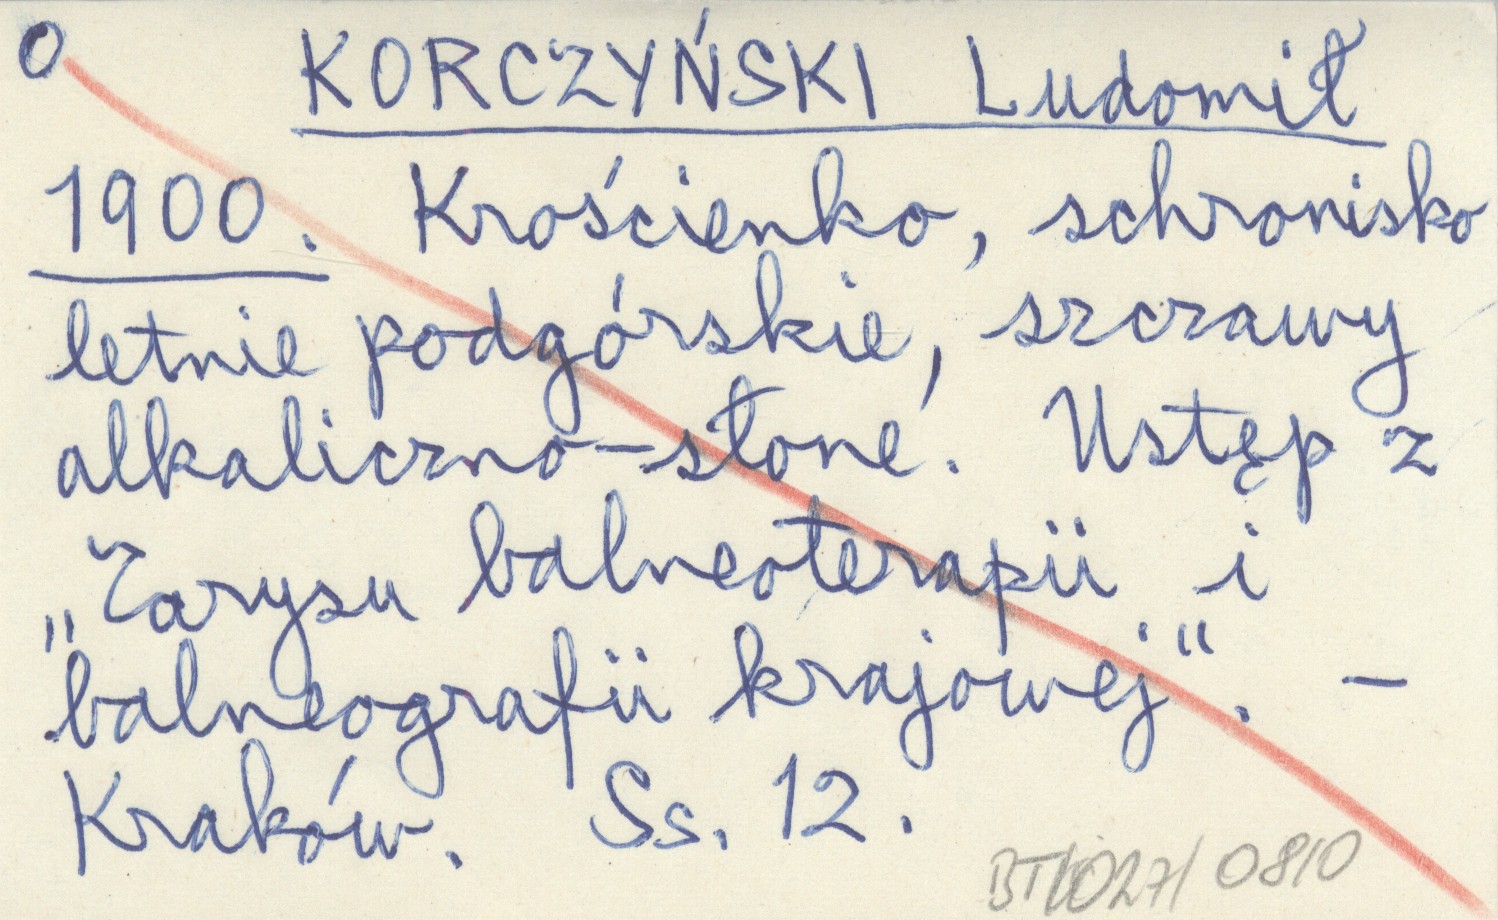 O KORCZYŃSKI Ludomił
1900. Krościenko, schronisko
letnie podgórskie, szczawy
alkaliczno-słone. Ustęp z
„Zarysu balneoterapii i
balneografii krajowej". -
Kraków. Ss. 12.
0810